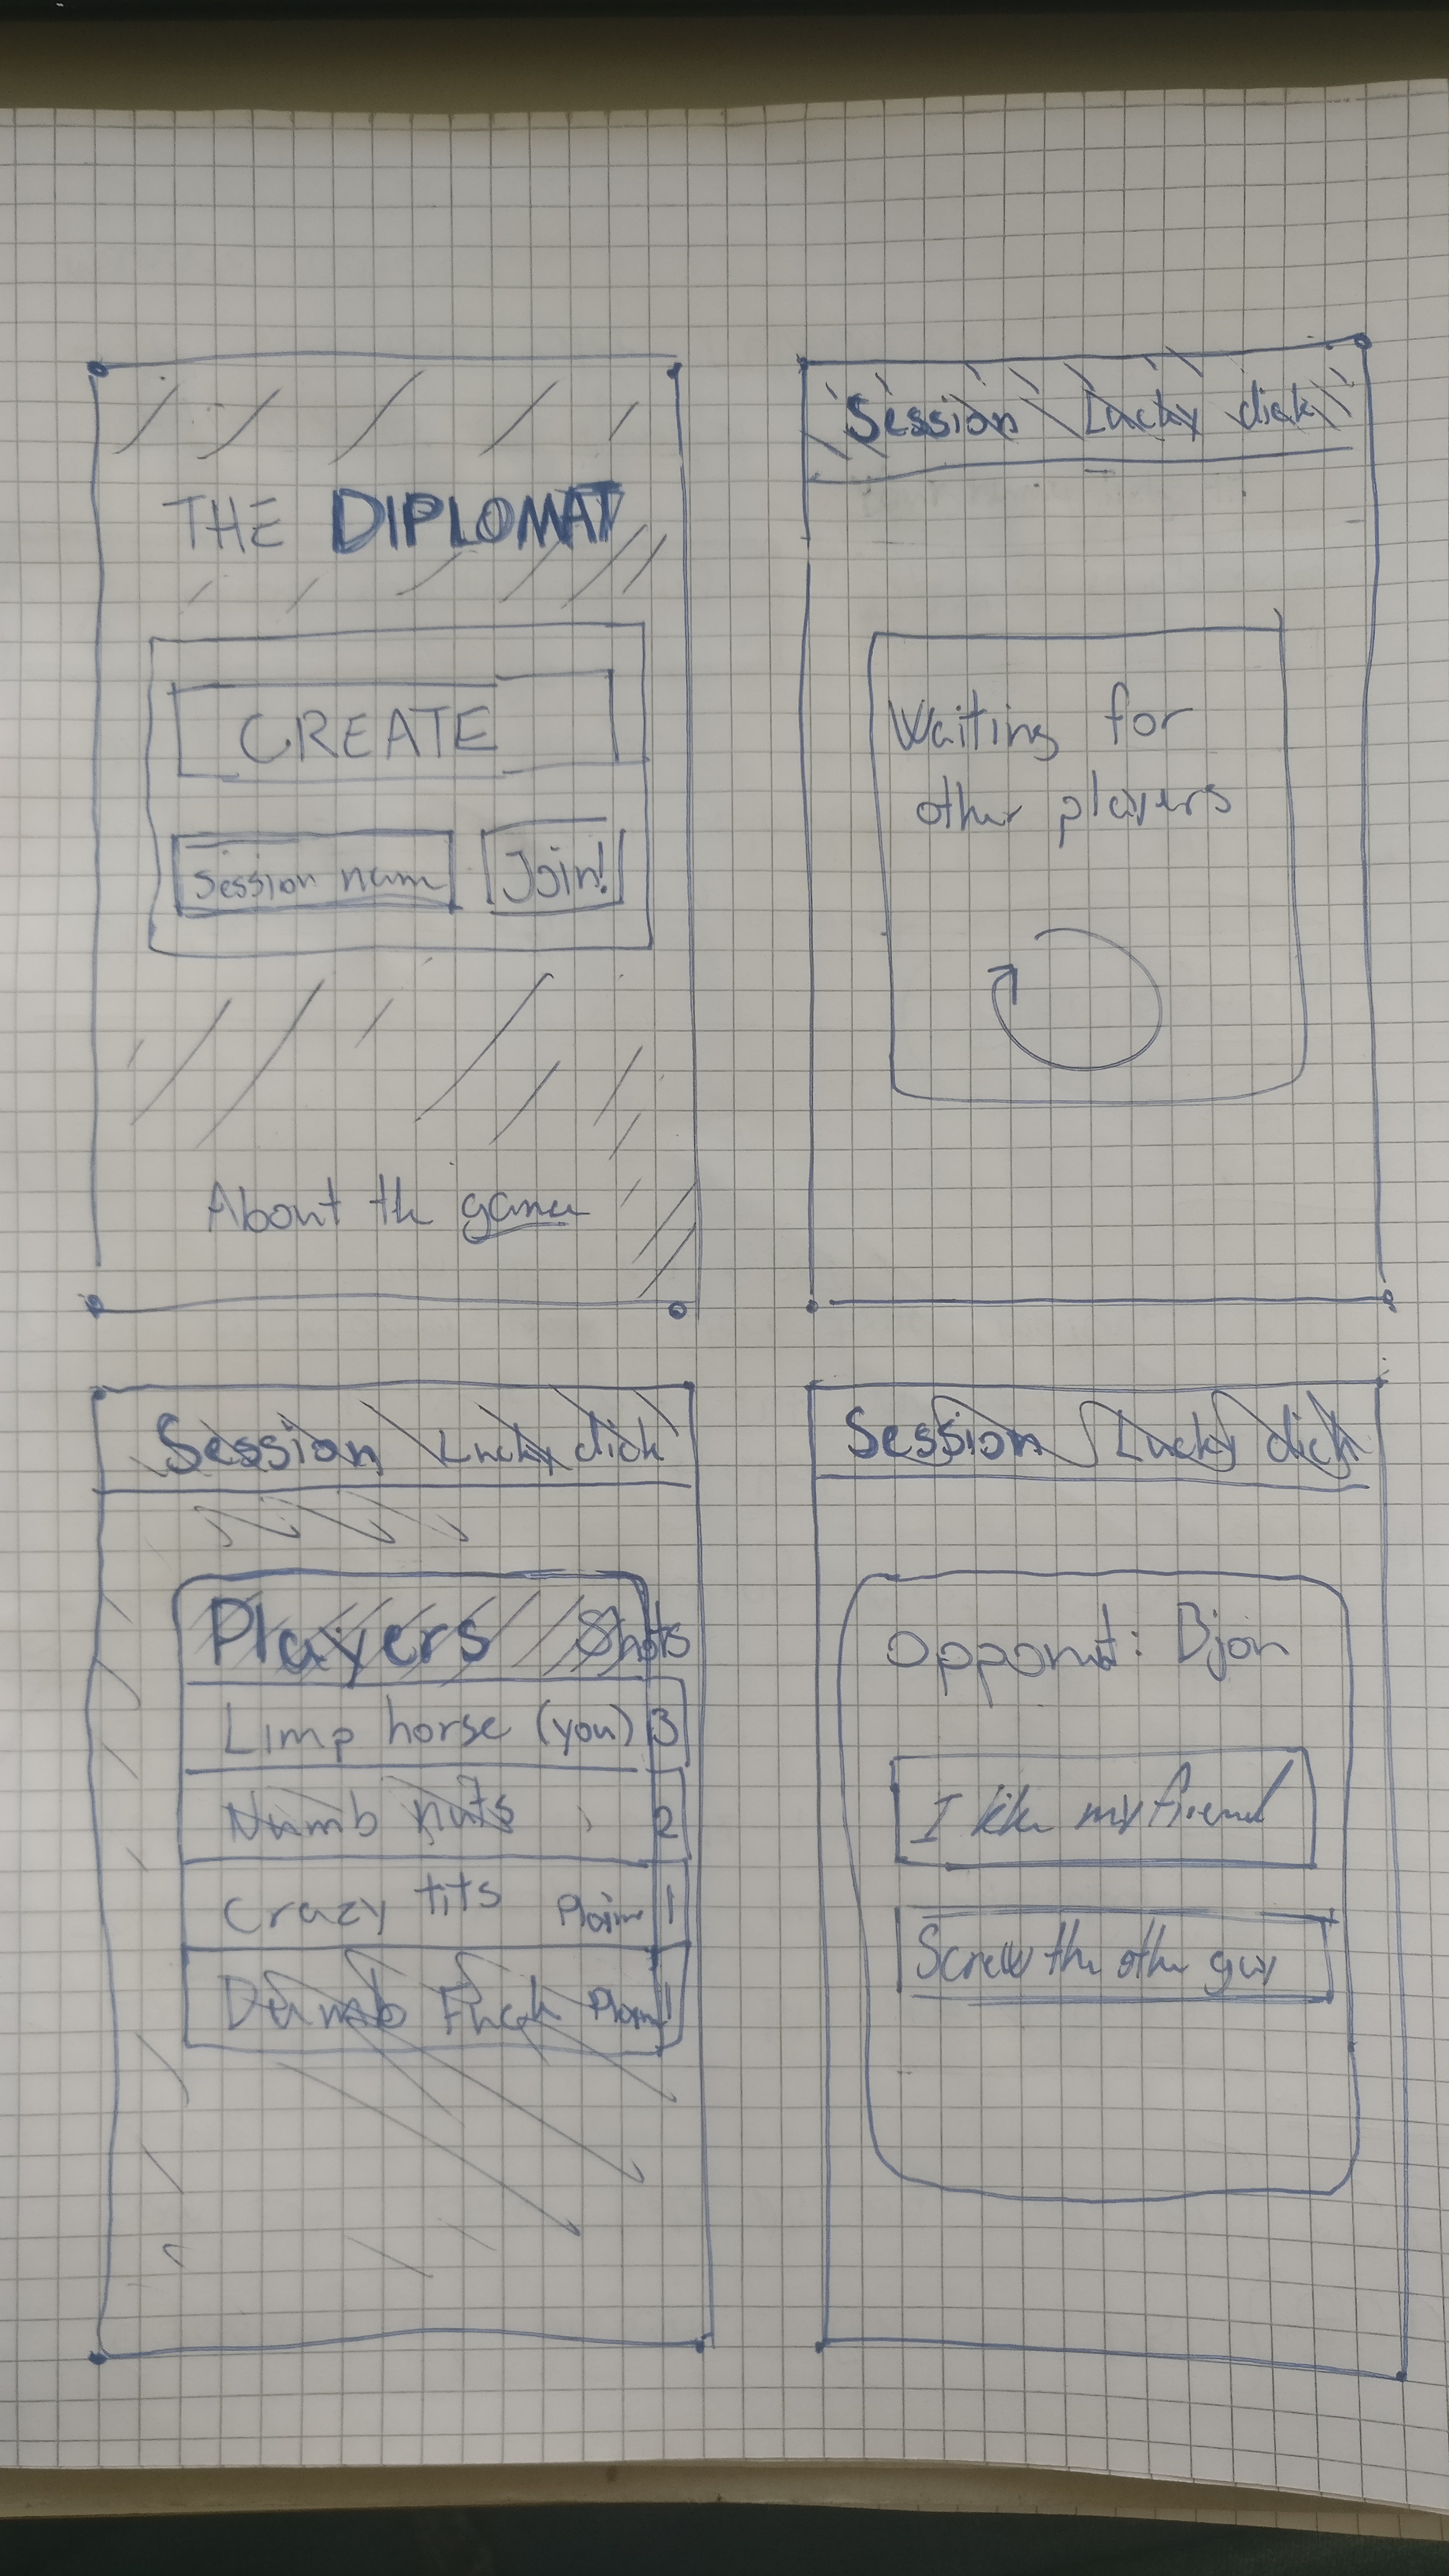 THE DIPLOMAT
CREATE
Session name
Join!
About the game
Session Lucky dick
Waiting for
other players
Session Lucky dick
Players Shots
Limp horse (you) 3
Numb nuts 2
Crazy tits 1
Dumb Fuck 1
Session Lucky dick
Opponet: Bjon
I like my friend
Screw the other guy